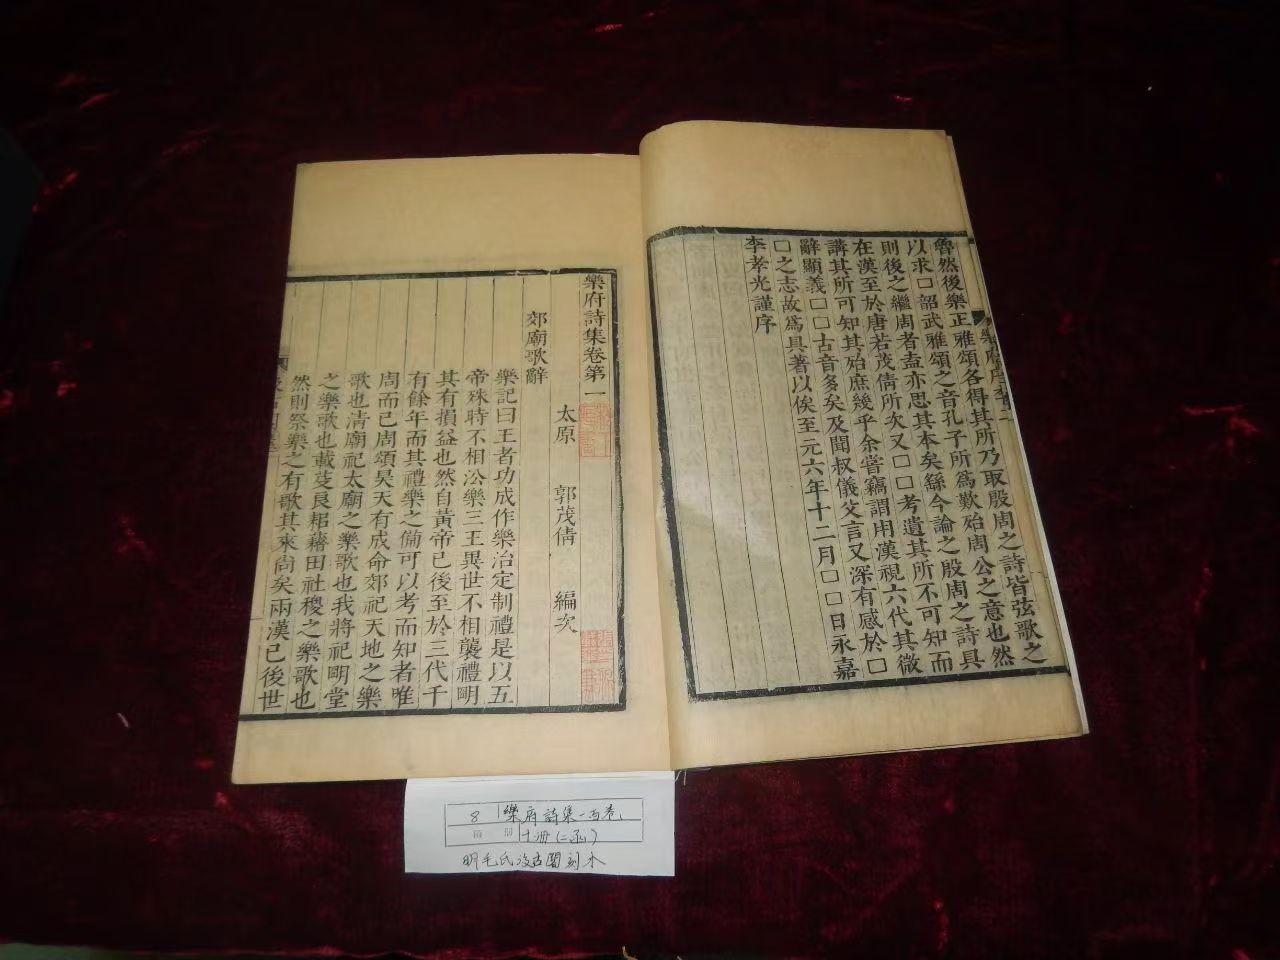 魯然後樂正雅頌各得其所乃取殷周之詩皆弦歌之
以求□韶武雅頌之音孔子所爲歎殆周公之意也然
則後之繼周者盍亦思其本矣繇今論之殷周之詩具
在漢至於唐若茂倩所次又□□考遺其所不可知而
講其所可知其殆庶幾乎余嘗竊謂用漢視六代其微
辭顯義□□古音多矣及聞叔儀父言又深有感於□
□之志故爲具著以俟至元六年十二月□□日永嘉
李孝光謹序
樂府詩集卷第一
太原 郭茂倩 編次
郊廟歌辭
樂記曰王者功成作樂治定制禮是以五
帝殊時不相沿樂三王異世不相襲禮明
其有損益也然自黃帝已後至於三代千
有餘年而其禮樂之備可以考而知者唯
周而已周頌昊天有成命郊祀天地之樂
歌也清廟祀太廟之樂歌也我將祀明堂
之樂歌也載芟良耜藉田社稷之樂歌也
然則祭樂之有歌其來尚矣兩漢已後世
8 樂府詩集一百卷
十冊(二函)
明毛氏汲古閣刻本